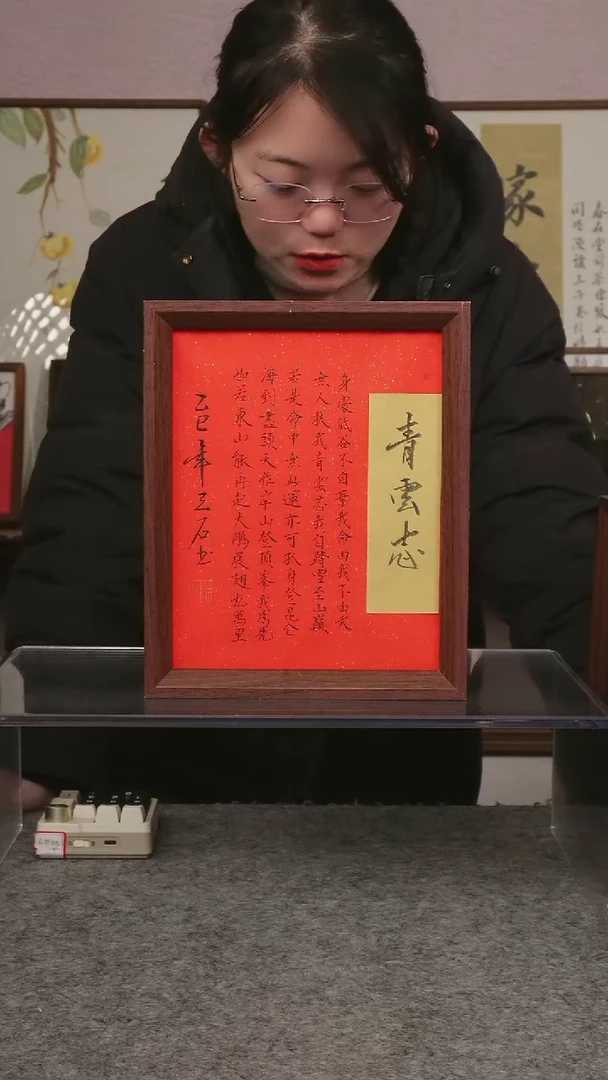 青雲志
身處低谷不自棄我命由我不由天
無人扶我青雲志我自踏雪至山巔
若是命中無此運亦可孤身登昆仑
海到盡頭天作岸山登頂峯我為先
如若東山能再起大鵬展翅九萬里
乙巳年三石书
家